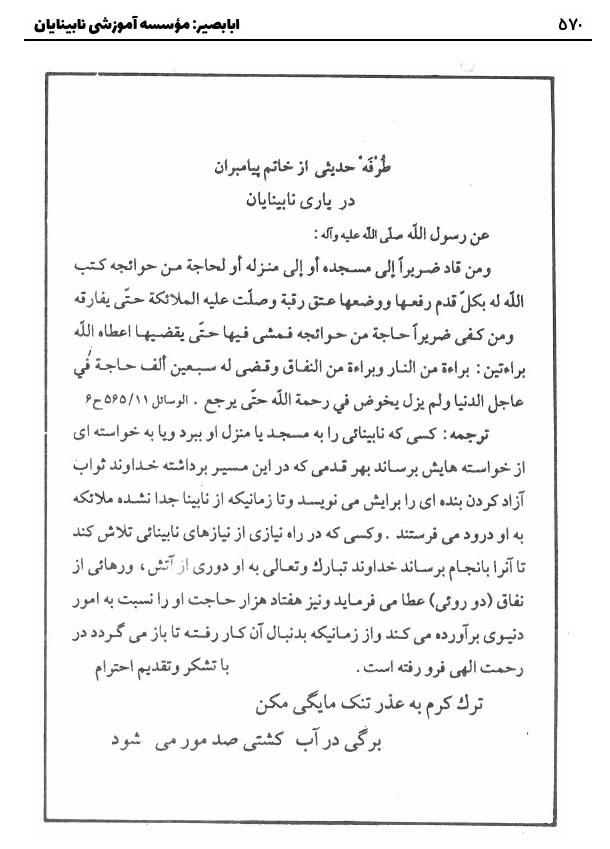 ۵۷۰ ابابصیر: مؤسسه آموزشی نابینایان
طُرْفَهْ حدیثی از خاتم پیامبران
در یاری نابینایان
عن رسول اللّه صلّی اللّه علیه وآله :
ومن قاد ضریراً إلی مسجده أو إلی منزله أو لحاجة من حوائجه کتب
اللّه له بکلّ قدم رفعها ووضعها عتق رقبة وصلّت علیه الملائکة حتّی یفارقه
ومن کفی ضریراً حاجة من حوائجه فمشی فیها حتّی یقضیها اعطاه اللّه
براءتین : براءة من النار وبراءة من النفاق وقضی له سبعین ألف حاجة في
عاجل الدنیا ولم یزل یخوض في رحمة اللّه حتّی یرجع . الوسائل ۵۶۵/۱۱ ح۶
ترجمه : کسی که نابینائی را به مسجد یا منزل او ببرد ویا به خواسته ای
از خواسته هایش برساند بهر قدمی که در این مسیر برداشته خداوند ثواب
آزاد کردن بنده ای را برایش می نویسد وتا زمانیکه از نابینا جدا نشده ملائکه
به او درود می فرستند . وکسی که در راه نیازی از نیازهای نابینائی تلاش کند
تا آنرا بانجام برساند خداوند تبارك وتعالی به او دوری از آتش ، ورهائی از
نفاق (دو روئی) عطا می فرماید ونیز هفتاد هزار حاجت او را نسبت به امور
دنیوی برآورده می کند واز زمانیکه بدنبال آن کار رفته تا باز می گردد در
رحمت الهی فرو رفته است . با تشکر وتقدیم احترام
ترك کرم به عذر تنک مایگی مکن
برگی در آب کشتی صد مور می شود